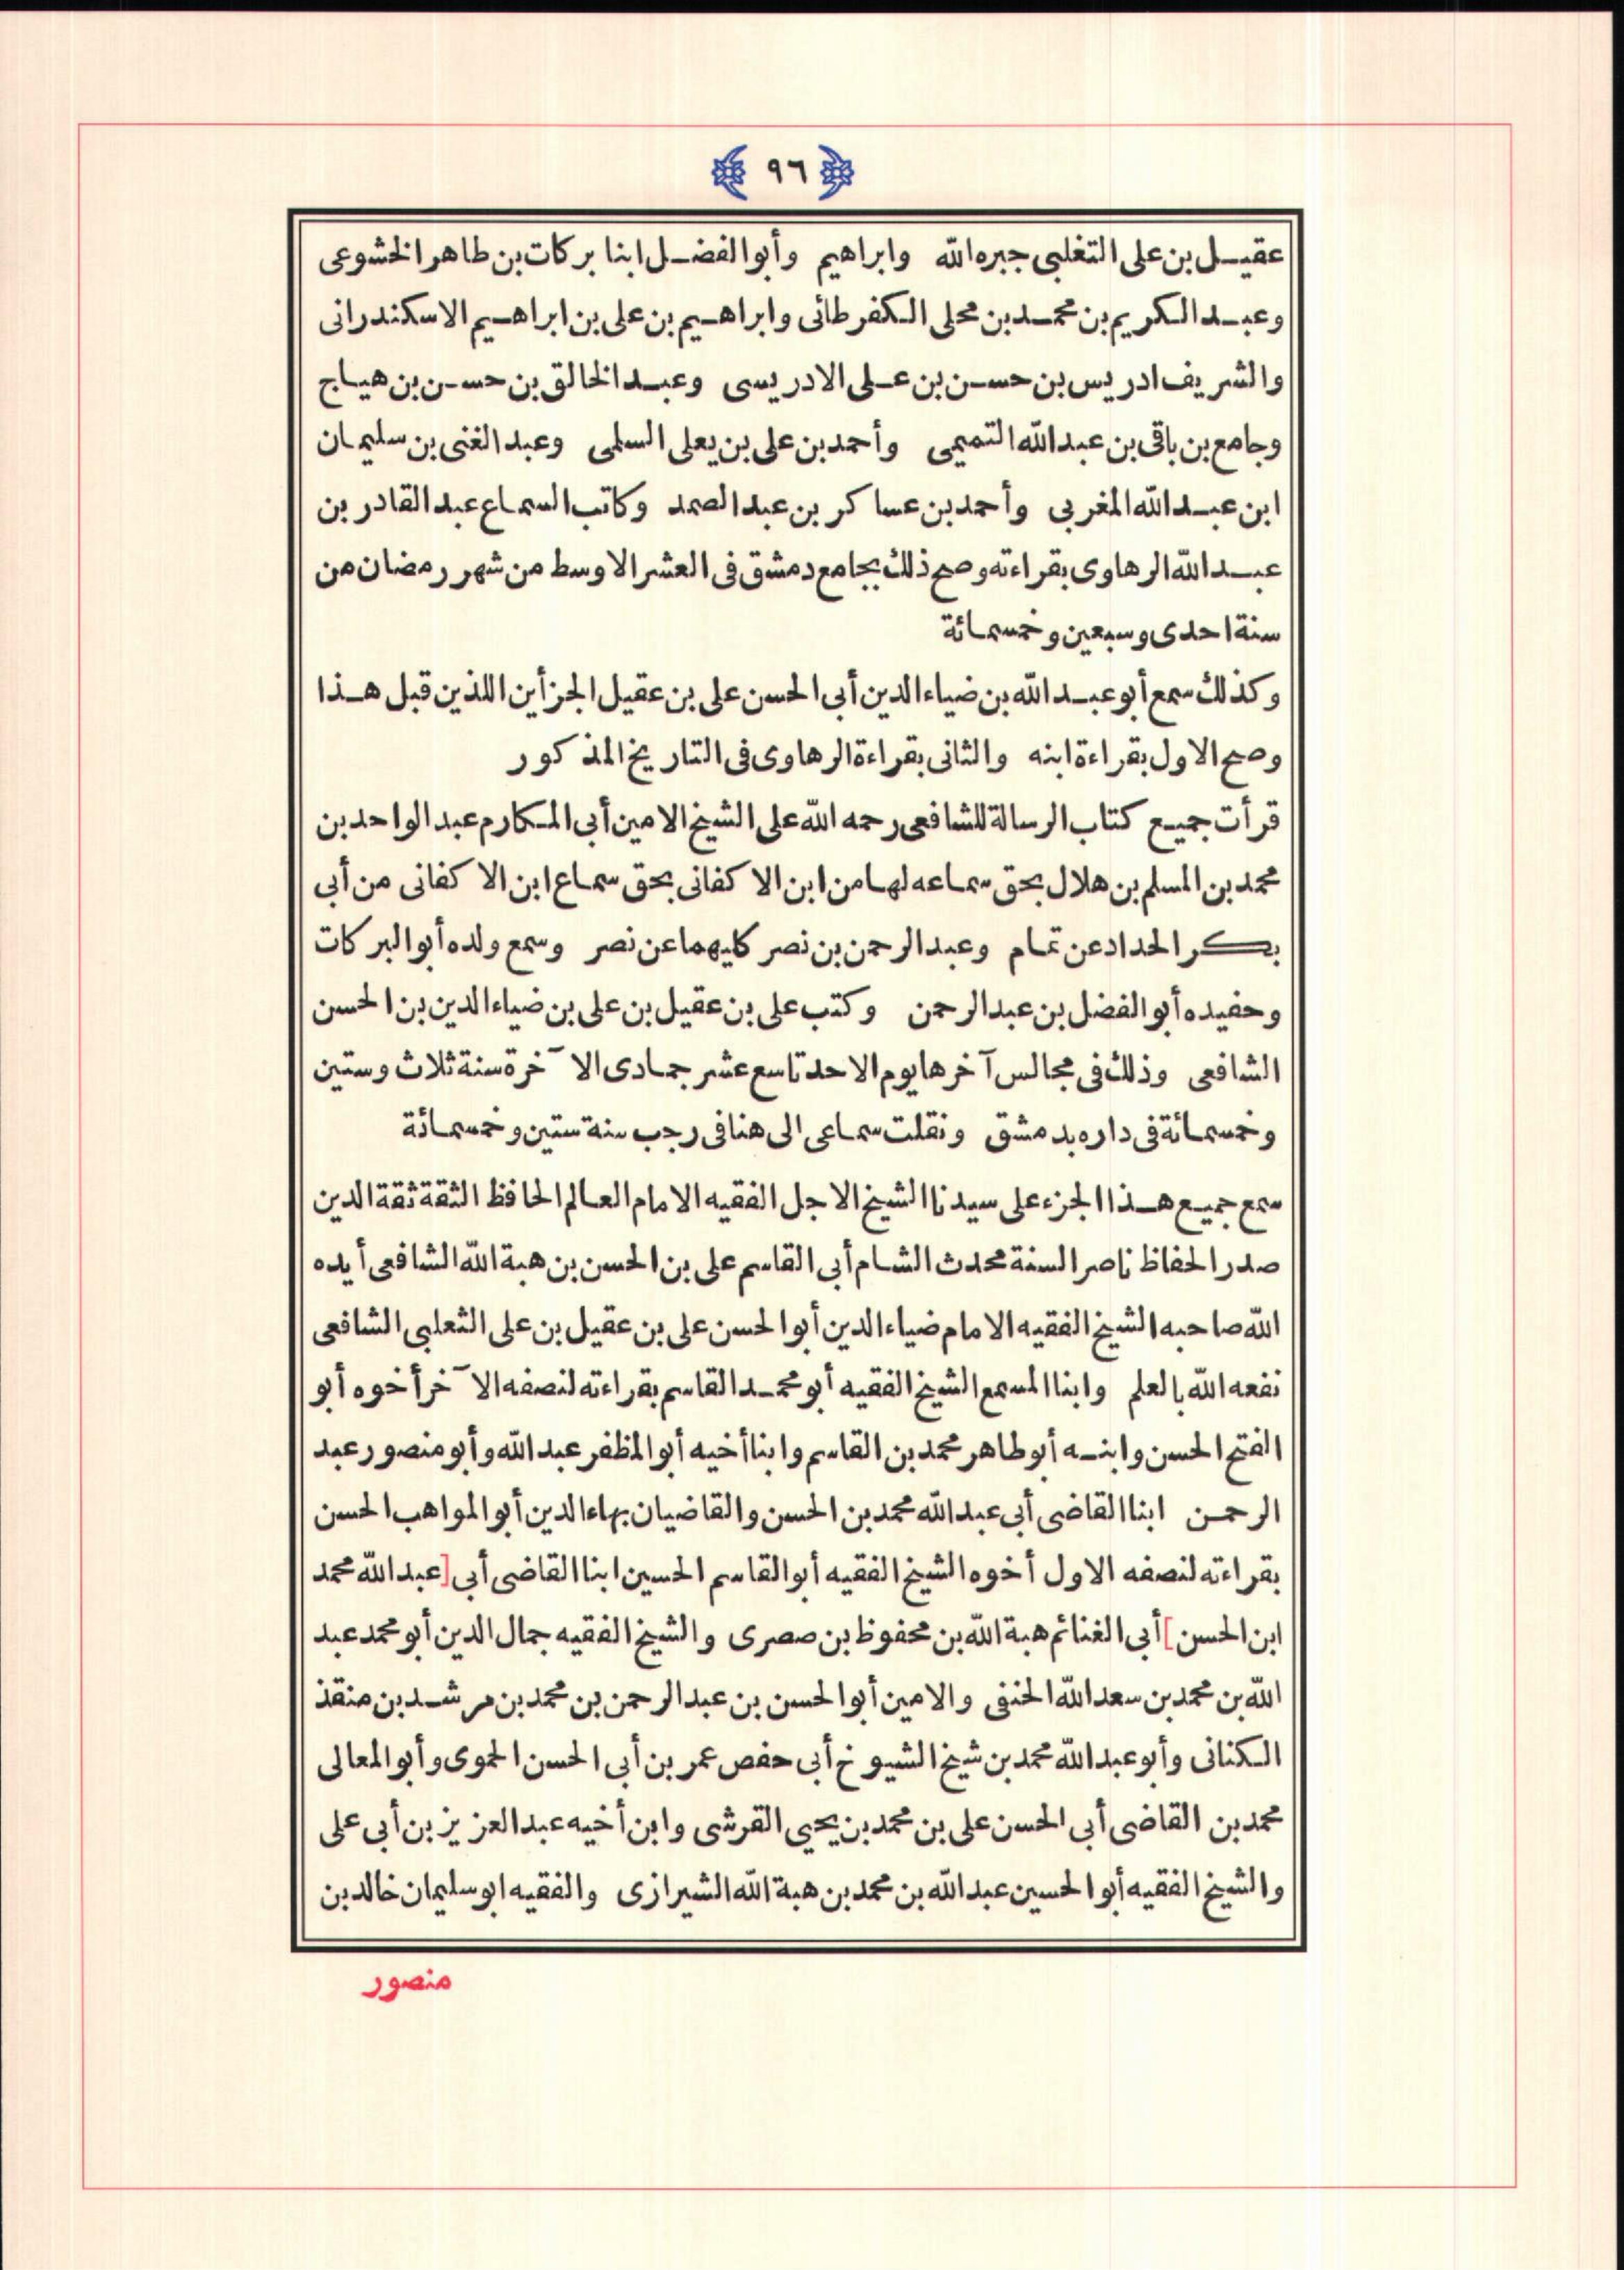 ٩٦
عقيل بن على التغلبى جبره الله وابراهيم وأبو الفضل ابنا بركات بن طاهر الخشوعى
وعبد الكريم بن محمد بن محلى الكفرطائى وابراهيم بن على بن ابراهيم الاسكندرانى
والشريف ادريس بن حسن بن على الادريسى وعبد الخالق بن حسن بن هياج
وجامع بن باقى بن عبد الله التميمى وأحمد بن على بن يعلى السلمى وعبد الغنى بن سليمان
ابن عبد الله المغربى وأحمد بن عساكر بن عبد الصمد وكاتب السماع عبد القادر بن
عبد الله الرهاوى بقراءته وصح ذلك بجامع دمشق فى العشر الاوسط من شهر رمضان من
سنة احدى وسبعين وخمسمائة
وكذلك سمع أبو عبد الله بن ضياء الدين أبى الحسن على بن عقيل الجزأين اللذين قبل هذا
وصح الاول بقراءة ابنه والثانى بقراءة الرهاوى فى التاريخ المذكور
قرأت جميع كتاب الرسالة للشافعى رحمه الله على الشيخ الامين أبى المكارم عبد الواحد بن
محمد بن المسلم بن هلال بحق سماعه لها من ابن الاكفانى بحق سماع ابن الاكفانى من أبى
بكر الحداد عن تمام وعبد الرحمن بن نصر كليهما عن نصر وسمع ولده أبو البركات
وحفيده أبو الفضل بن عبد الرحمن وكتب على بن عقيل بن على بن ضياء الدين بن الحسن
الشافعى وذلك فى مجالس آخرها يوم الاحد تاسع عشر جمادى الآخرة سنة ثلاث وستين
وخمسمائة فى داره بدمشق ونقلت سماعى الى هنا فى رجب سنة ستين وخمسمائة
سمع جميع هذا الجزء على سيدنا الشيخ الاجل الفقيه الامام العالم الحافظ الثقة ثقة الدين
صدر الحفاظ ناصر السنة محدث الشام أبى القاسم على بن الحسن بن هبة الله الشافعى أيده
الله صاحبه الشيخ الفقيه الامام ضياء الدين أبو الحسن على بن عقيل بن على الثعلبى الشافعى
نفعه الله بالعلم وابنا المسمع الشيخ الفقيه أبو محمد القاسم بقراءته لنصفه الآخر أخوه أبو
الفتح الحسن وابنه أبو طاهر محمد بن القاسم وابنا أخيه أبو المظفر عبد الله وأبو منصور عبد
الرحمن ابنا القاضى أبى عبد الله محمد بن الحسن والقاضيان بهاء الدين أبو المواهب الحسن
بقراءته لنصفه الاول أخوه الشيخ الفقيه أبو القاسم الحسين ابنا القاضى أبى [عبد الله محمد
ابن الحسن] أبى الغنائم هبة الله بن محفوظ بن صصرى والشيخ الفقيه جمال الدين أبو محمد عبد
الله بن محمد بن سعد الله الحنفى والامين أبو الحسن بن عبد الرحمن بن محمد بن مرشد بن منقذ
الكنانى وأبو عبد الله محمد بن شيخ الشيوخ أبى حفص عمر بن أبى الحسن الحموى وأبو المعالى
محمد بن القاضى أبى الحسن على بن محمد بن يحيى القرشى وابن أخيه عبد العزيز بن أبى على
والشيخ الفقيه أبو الحسين عبد الله بن محمد بن هبة الله الشيرازى والفقيه ابو سليمان خالد بن
منصور